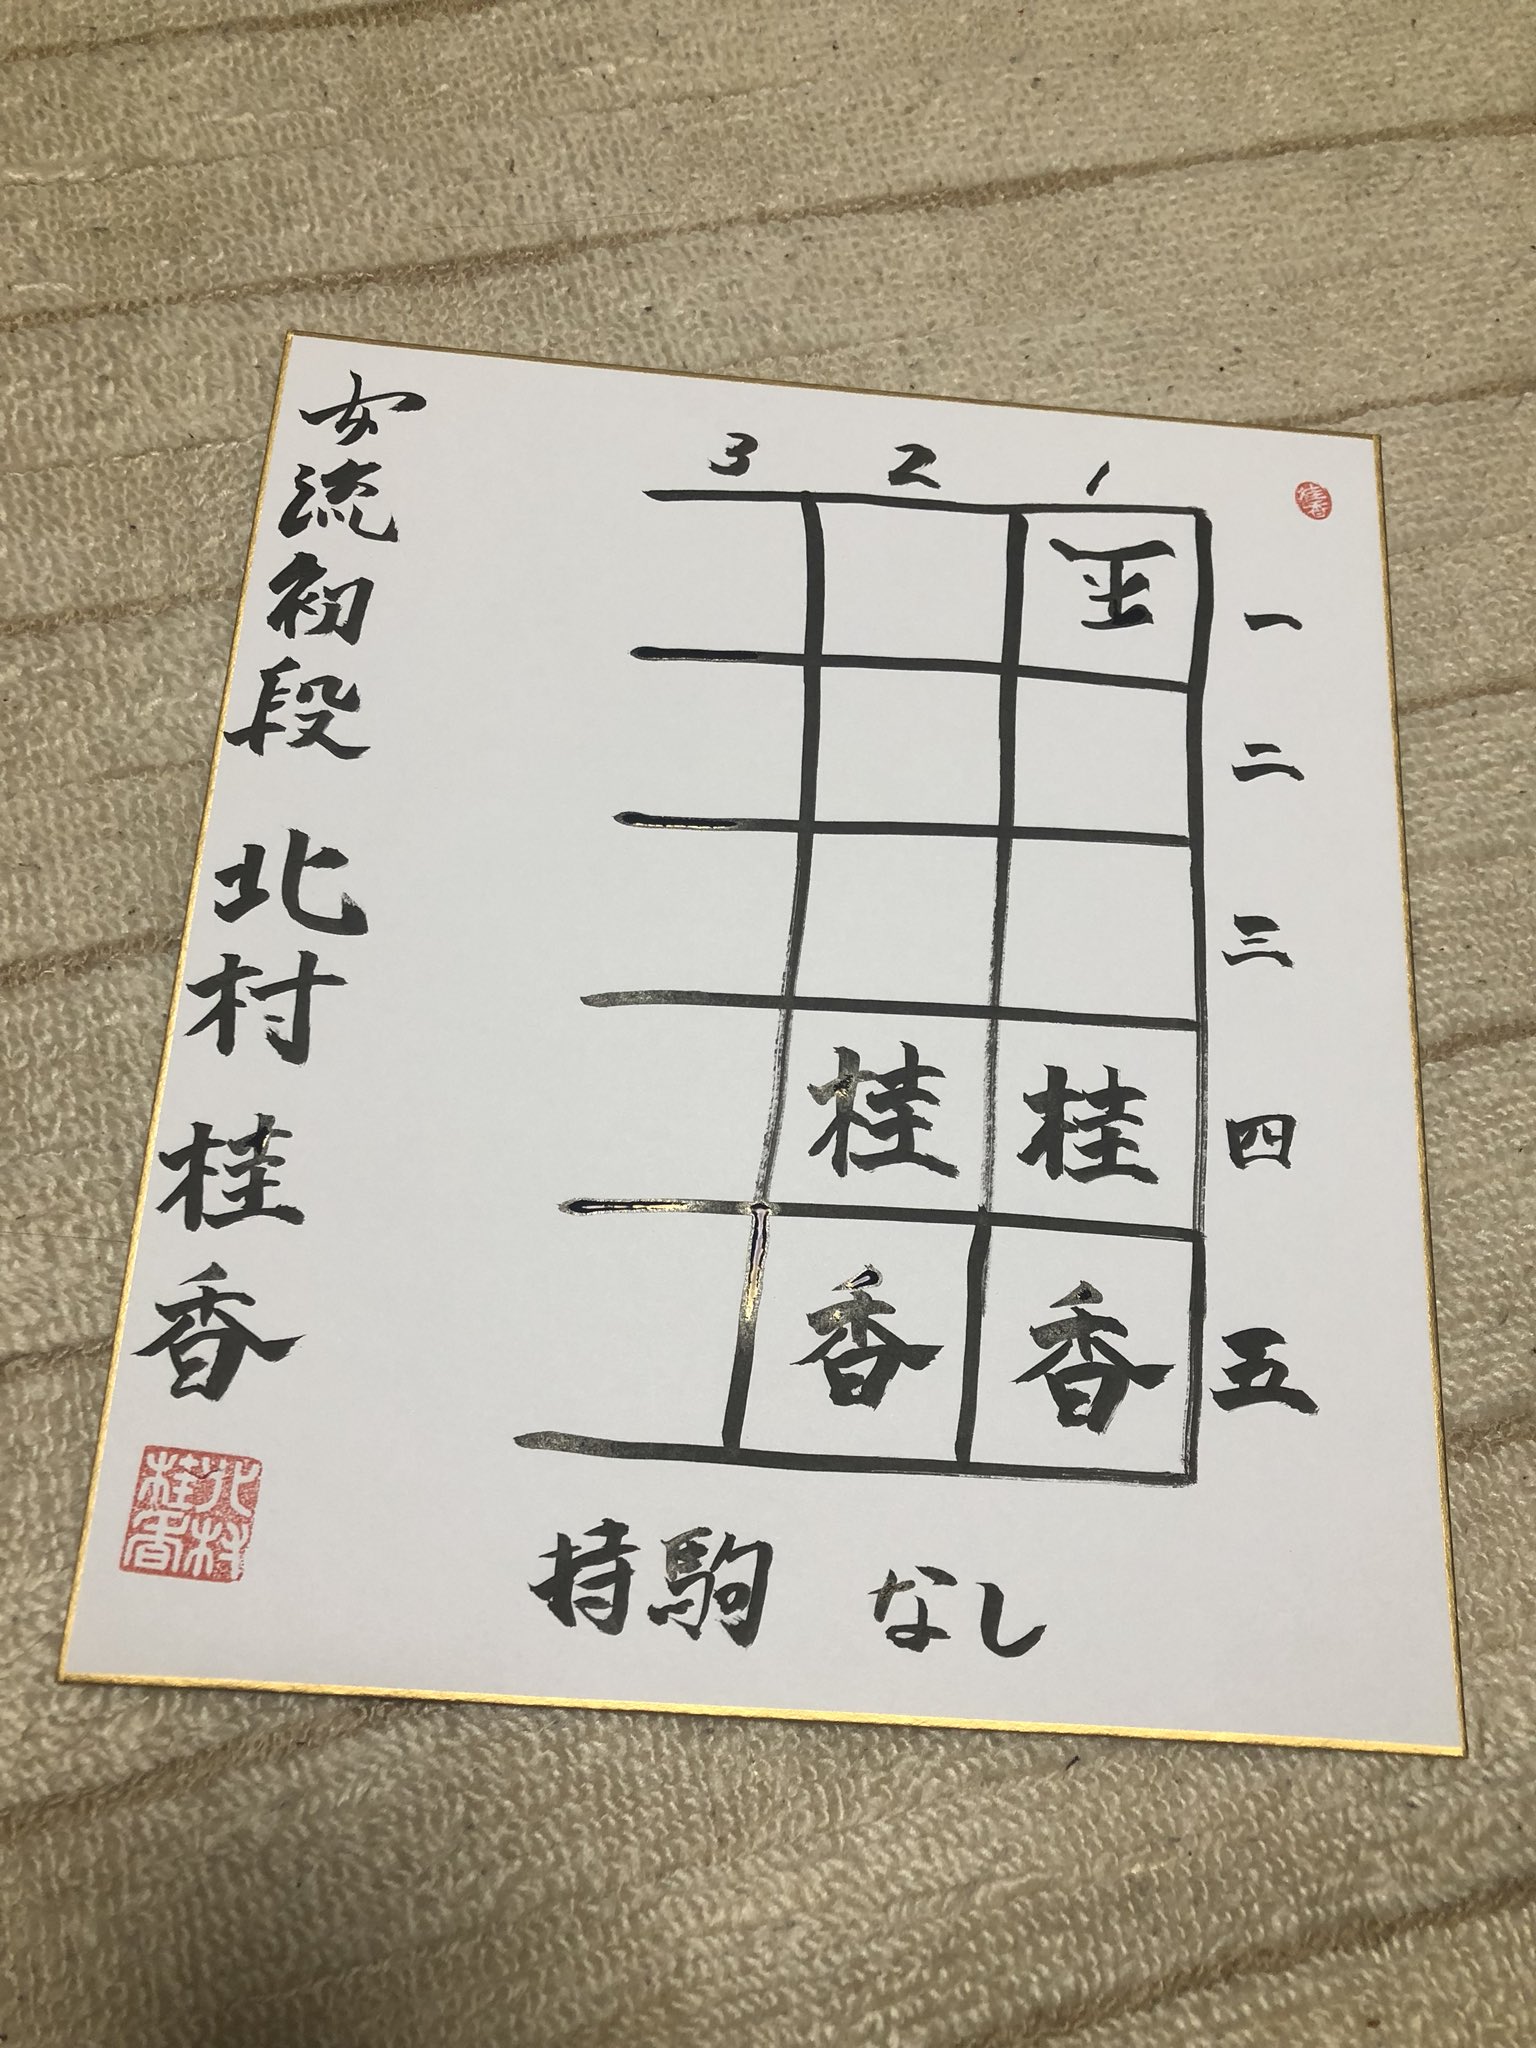 桂香
3 2 1
王 一
二
三
桂 桂 四
香 香 五
持駒 なし
女流初段 北村 桂香
北村桂香